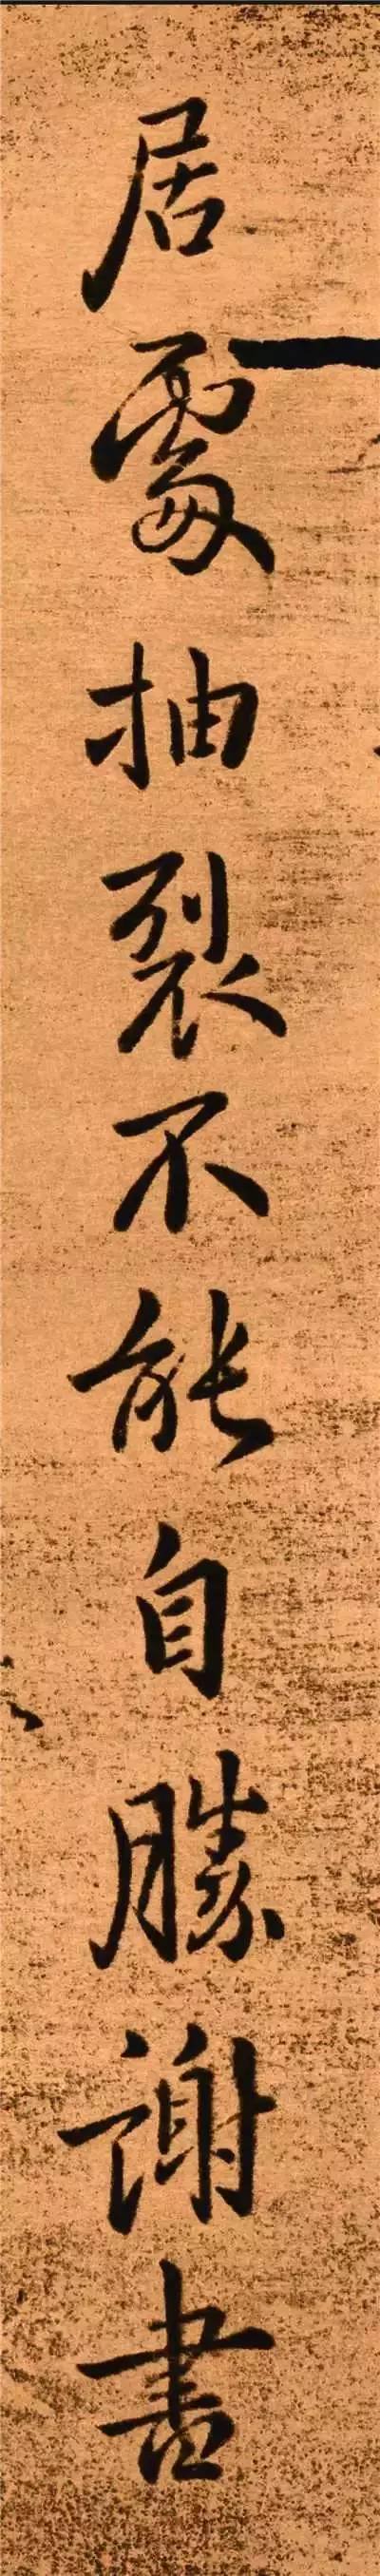 居處抽裂不能自勝謝書